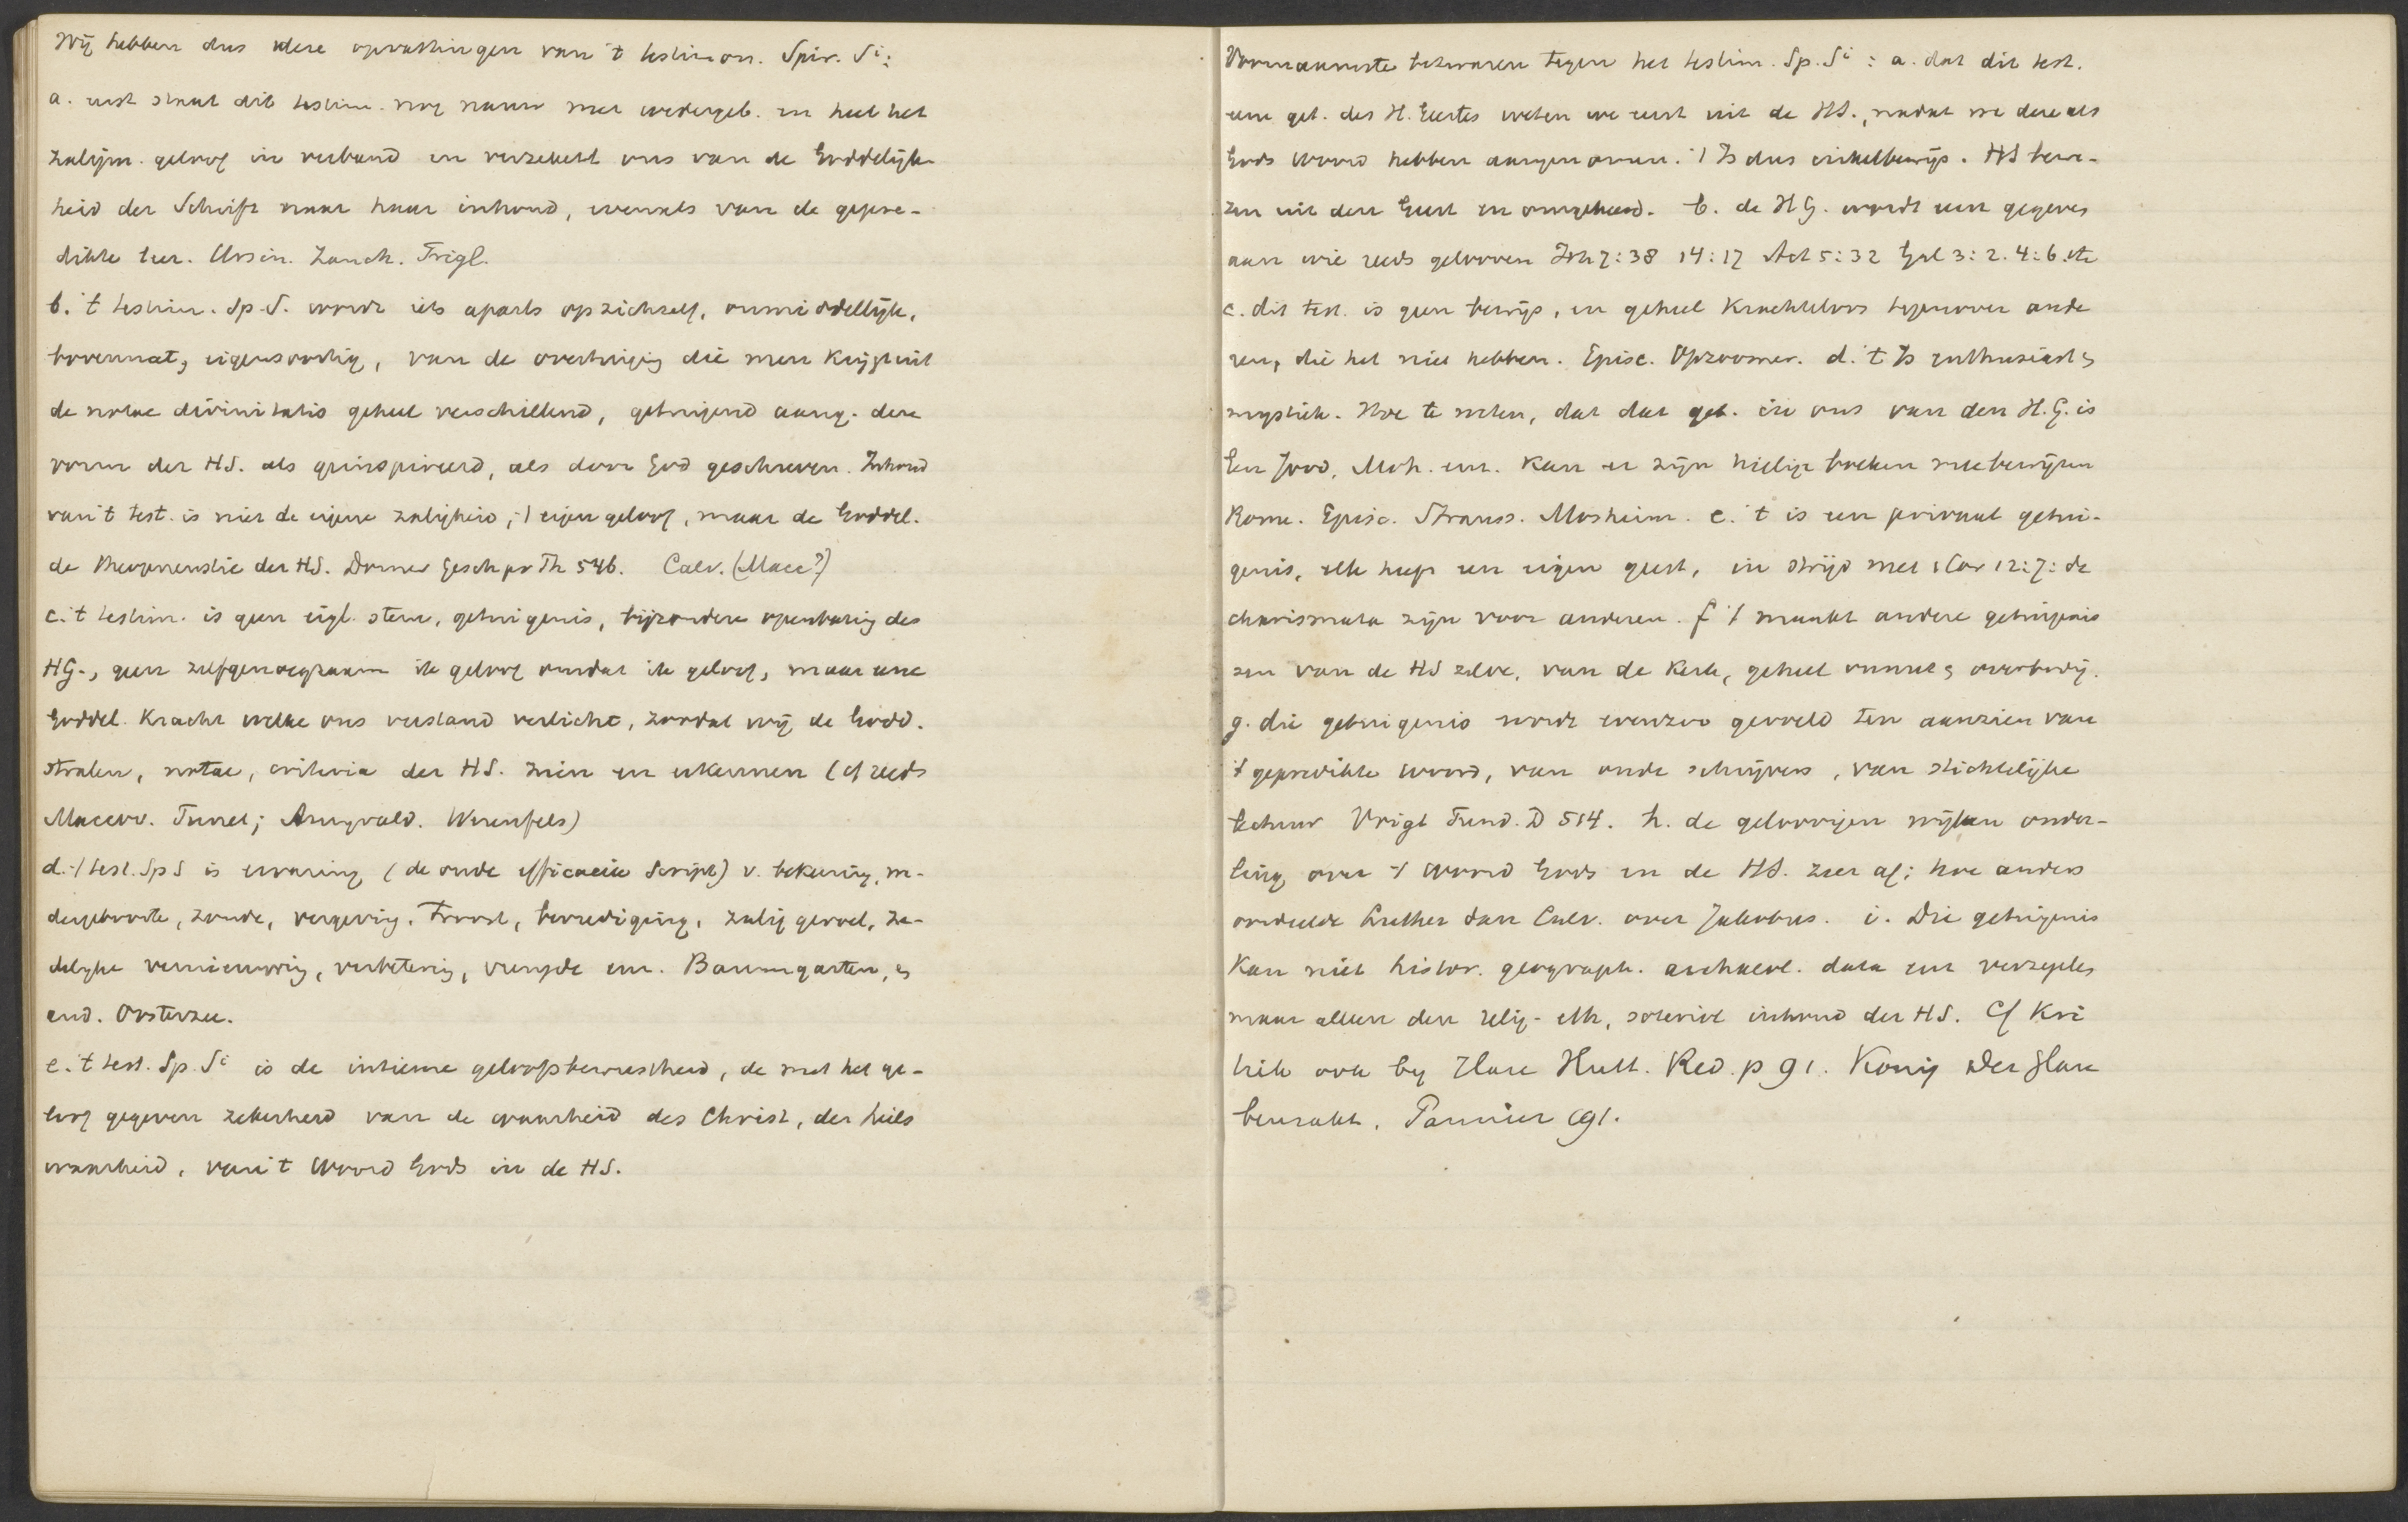 Wij hebben dus deze opvattingen van 't testimon. Spir. Si:
a. eerst staat dit testim. nog nauw met wedergeb. en heel het
zaligm. geloof in verband en verzekert ons van de Goddelijk-
heid der Schrift naar haar inhoud, evenals van de gepre-
dikte leer. Ursin. Zanch. Trigl.
b. 't testim. Sp. S. wordt iets aparts op zichzelf, onmiddellijk,
bovennat, eigensoortig, van de overtuiging die men krijgt uit
de notae divinitatis geheel verschillend, getuigend aang. deze
vorm der HS. als geinspireerd, als door God geschreven. Inhoud
van 't test. is niet de eigene zaligheid, 't eigen geloof, maar de Goddel.
de theopneustie der HS. Dorner Gesch pr Th 546. Calv. (Macc?)
c. 't testim. is geen eigl. stem, getuigenis, bijzondere openbaring des
HG., geen zelfgenoegzaam ik geloof omdat ik geloof, maar eene
Goddel. Kracht welke ons verstand verlicht, zoodat wij de Godd.
stralen, notae, criteria der HS. zien en erkennen (cf reeds
Maccov. Turret; Amyrald. Werenfels)
d. 't test. Sp S is ervaring (de oude efficacia Script) v. bekeering, we-
dergeboorte, zonde, vergeving, troost, bevrediging, zalig gevoel, ze-
delijke vernieuwing, verbetering, vreugde enz. Baumgarten, en
and. Oosterzee.
e. 't test. Sp. Si is de intieme geloofsbewustheid, de met het ge-
loof gegeven zekerheid van de waarheid des Christ, der heils
waarheid, van 't Woord Gods in de HS.
Voornaamste bezwaren tegen het testim. Sp. Si : a. dat dit test.
eene get. des H. Geestes weten we eerst uit de HS., nadat we deze als
Gods woord hebben aangenomen. 't Is dus cirkelbewijs. HS bewe-
zen uit den Geest en omgekeerd. b. de HG. wordt eerst gegeven
aan wie reeds gelooven Joh 7:38 14:17 Act 5:32 Gal 3:2. 4:6. etc
c. dit test. is geen bewijs, en geheel krachteloos tegenover ande
ren, die het niet hebben. Episc. Opzoomer. d. 't Is enthusiast en
mystiek. Hoe te weten, dat dat get. in ons van den H.G. is
Een Jood, Moh. enz. kan er zijn heilige boeken mee bewijzen
Rome. Episc. Strauss. Mosheim. e. 't is een privaat getui-
genis, elk heeft een eigen geest, in strijd met 1 Cor 12:7: de
charismata zijn voor anderen. f 't maakt andere getuigenis
sen van de HS zelve, van de Kerk, geheel onnut en overbodig.
g. die getuigenis wordt evenzoo gevoeld ten aanzien van
't gepredikte woord, van oude schrijvers, van stichtelijke
lectuur Voigt Fund. D 514. h. de geloovigen wijken onder-
ling over 't Woord Gods en de HS. zeer af: hoe anders
oordeelde Luther dan Calv. over Jakobus. i. Die getuigenis
kan niet histor. geograph. archaeol. data enz verzegelen
maar alleen den relig- eth, soteriol inhoud der HS. Cf Kri
tiek ook by Hase Hutt. Red. p 91. König Der Glau
bensakt. Pannier 191.